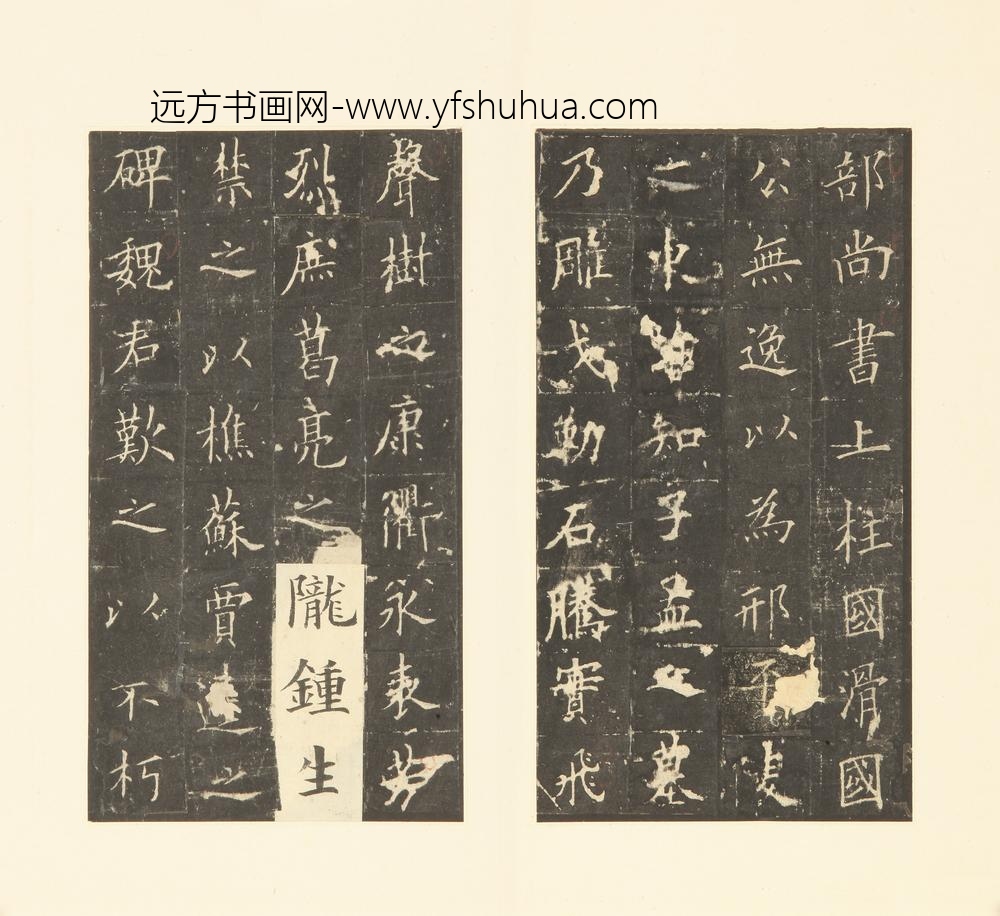 远方书画网-www.yfshuhua.com
部尚書上柱國滑國
公無逸以為邢陵
之東知子孟之墓
乃雕戈勒石騰實飛
聲樹之康衢永表芳
烈庶葛亮之隴鍾生
禁之以樵蘇賈逵之
碑魏君歎之以不朽